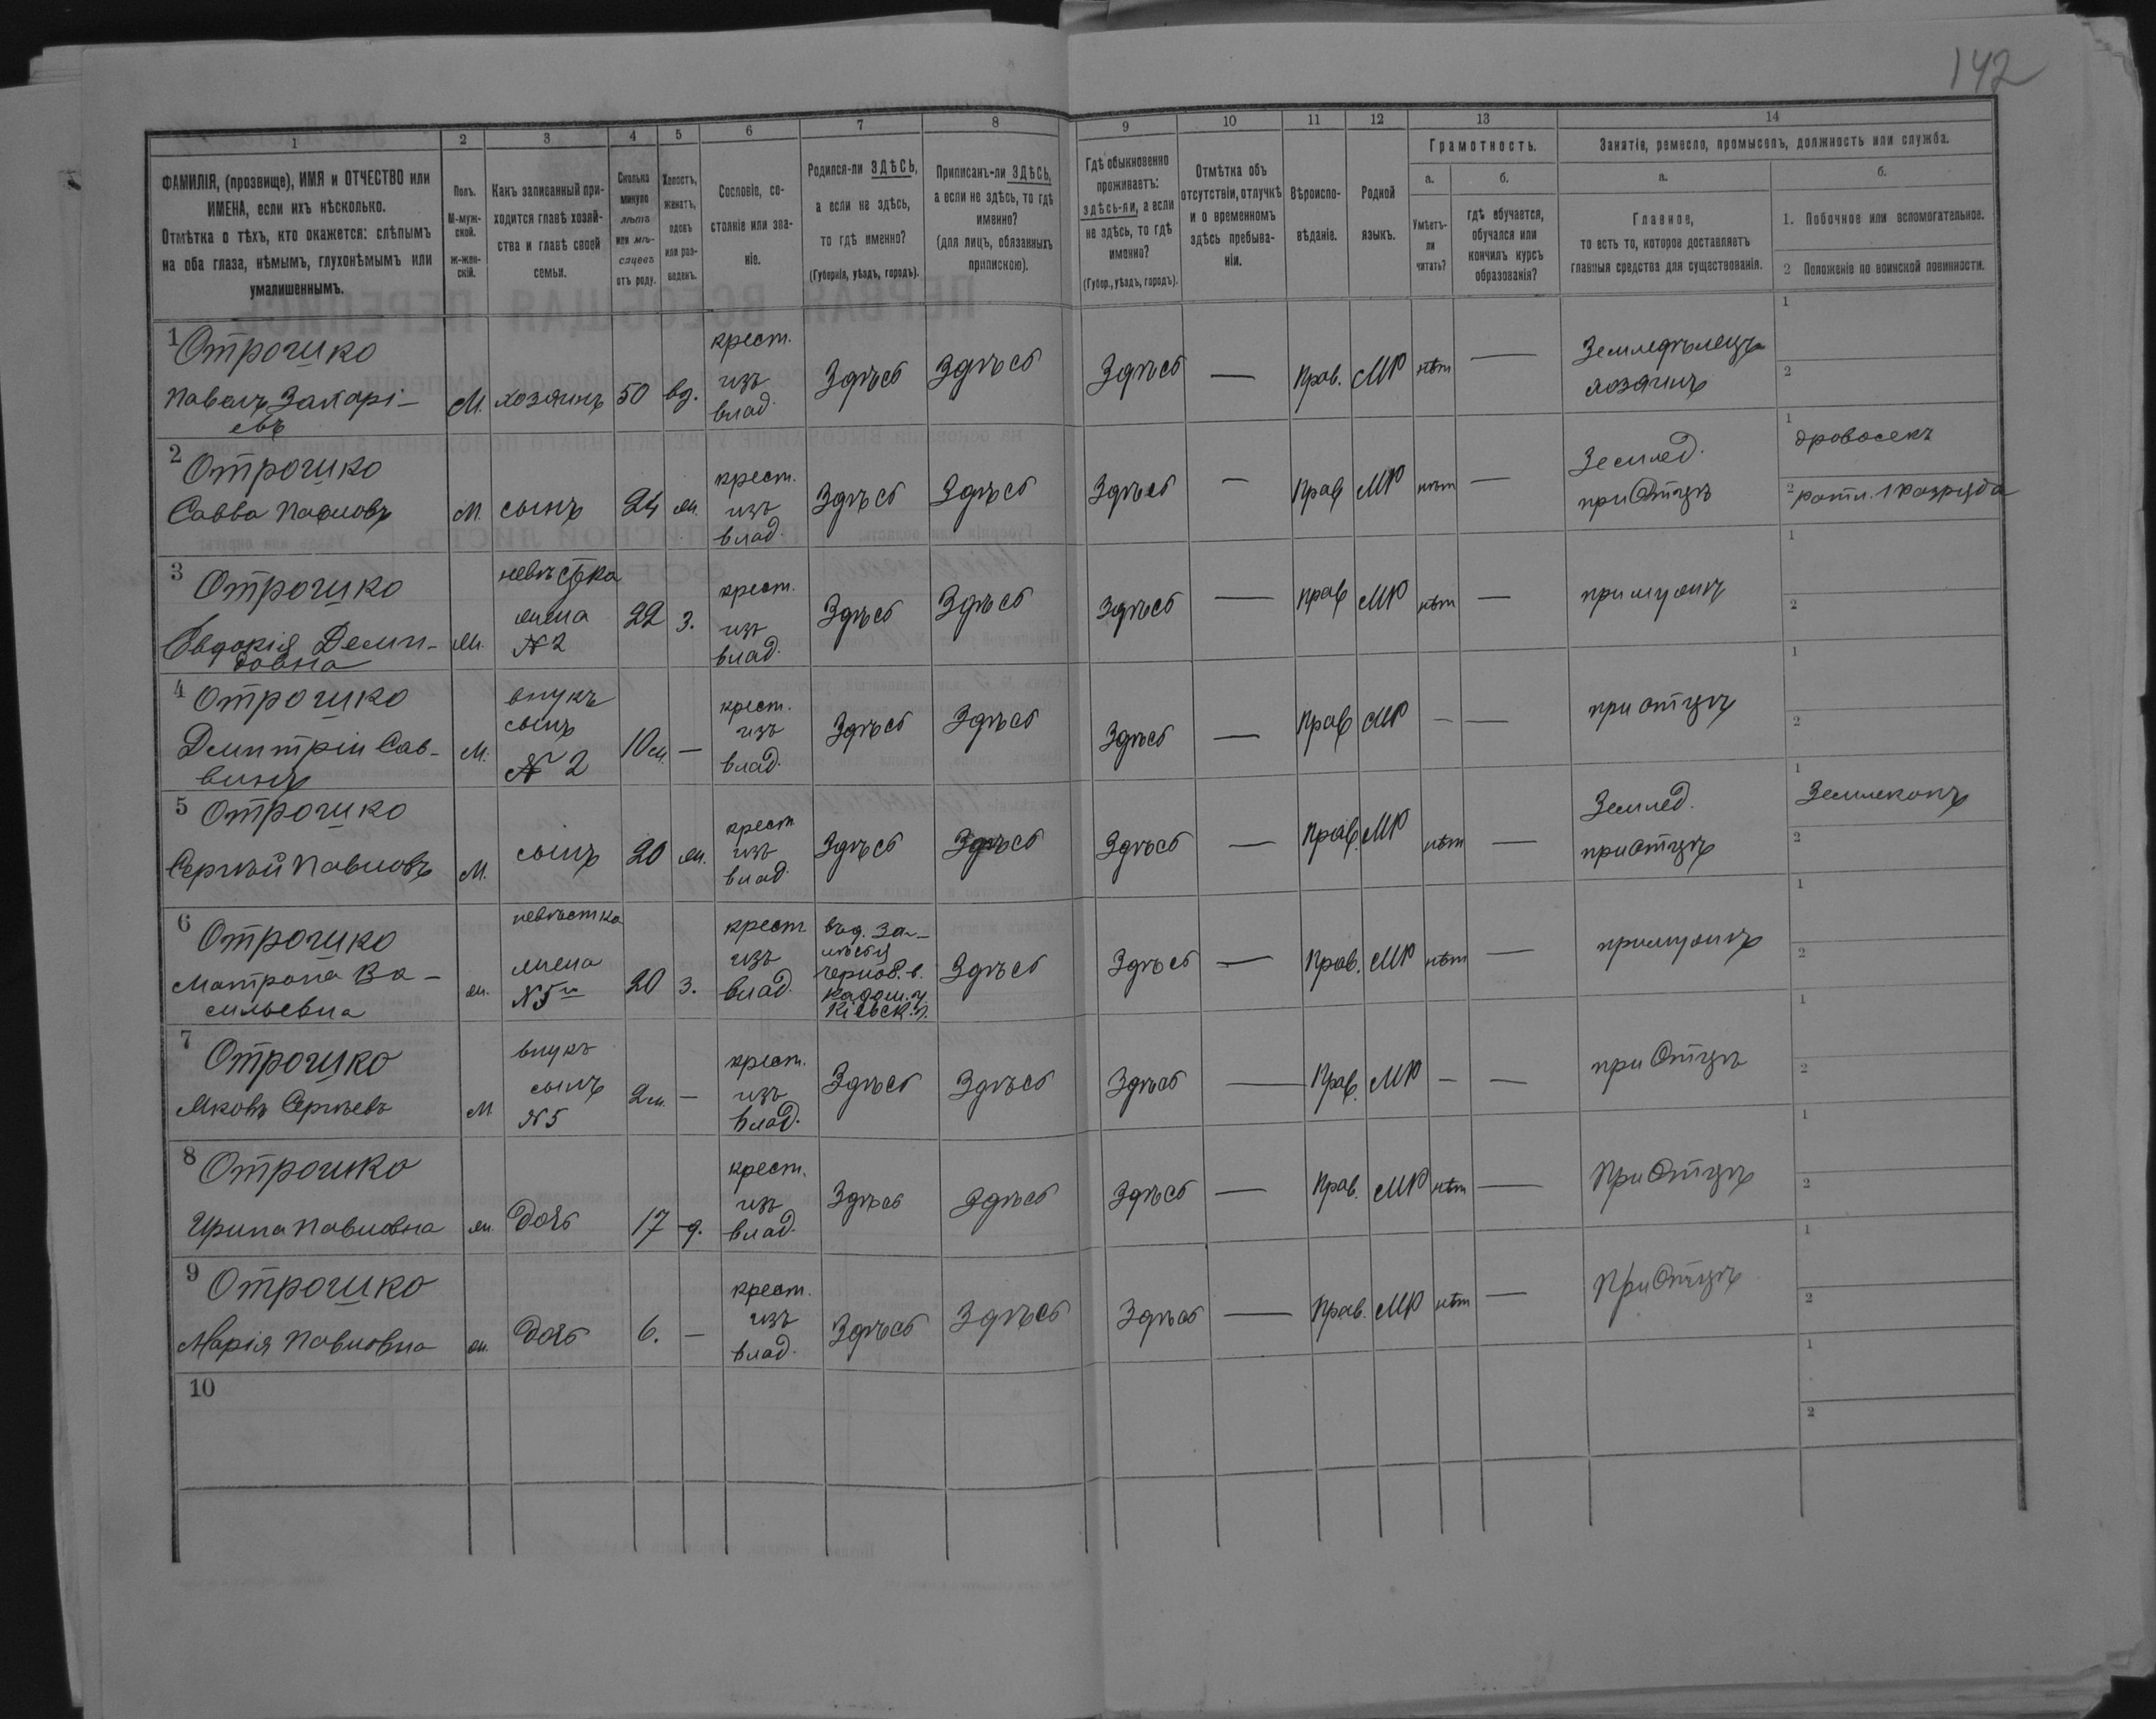 142
1 2 3 4 5 6 7 8 9 10 11 12 13 14
ФАМИЛІЯ, (прозвище), ИМЯ и ОТЧЕСТВО или
ИМЕНА, если ихъ нѣсколько.
Отмѣтка о тѣхъ, кто окажется: слѣпымъ
на оба глаза, нѣмымъ, глухонѣмымъ или
умалишеннымъ.
Полъ.
М-муж-
ской.
ж-жен-
скій.
Какъ записанный при-
ходится главѣ хозяй-
ства и главѣ своей
семьи.
Сколько
минуло
лѣтъ
или мѣ-
сяцевъ
отъ роду.
Холостъ,
женатъ,
вдовъ
или раз-
веденъ.
Сословіе, со-
стояніе или зва-
ніе.
Родился-ли ЗДѢСЬ,
а если не здѣсь,
то гдѣ именно?
(Губернія, уѣздъ, городъ).
Приписанъ-ли ЗДѢСЬ,
а если не здѣсь, то гдѣ
именно?
(для лицъ, обязанныхъ
припискою).
Гдѣ обыкновенно
проживаетъ:
здѣсь-ли, а если
не здѣсь, то гдѣ
именно?
(Губер., уѣздъ, городъ).
Отмѣтка объ
отсутствіи, отлучкѣ
и о временномъ
здѣсь пребыва-
ніи.
Вѣроиспо-
вѣданіе.
Родной
языкъ.
Грамотность.
а.
Умѣетъ-
ли
читать?
б.
гдѣ обучается,
обучался или
кончилъ курсъ
образованія?
Занятіе, ремесло, промыселъ, должность или служба.
а.
Главное,
то есть то, которое доставляетъ
главныя средства для существованія.
б.
1. Побочное или вспомогательное.
2 Положеніе по воинской повинности.
1 Отрошко
Павелъ Захарі-
евъ
М. хозяинъ 50 вд.
крест.
изъ
влад.
Здѣсь Здѣсь Здѣсь — Прав. МР нѣт —
Земледѣлецъ
хозяинъ
1
2
2 Отрошко
Савва Павловъ
М. сынъ 24 ж.
крест.
изъ
влад.
Здѣсь Здѣсь Здѣсь — Прав МР нѣт —
Землед.
при Отцѣ
1 дровосекъ
2 ратн. 1 разряда
3 Отрошко
Евдокія Деми-
довна
ж.
невѣстка
жена
№ 2
22 з.
крест.
изъ
влад.
Здѣсь Здѣсь Здѣсь — прав МР нѣт —
при мужѣ
1
2
4 Отрошко
Дмитрій Сав-
винъ
М.
внукъ
сынъ
№ 2
10 м. —
крест.
изъ
влад.
Здѣсь Здѣсь Здѣсь — Прав МР — —
при отцѣ
1
2
5 Отрошко
Сергѣй Павловъ
М. сынъ 20 ж.
крест
изъ
влад.
Здѣсь Здѣсь Здѣсь — Прав. МР нѣт —
Землед.
при отцѣ
1 Землекопъ
2
6 Отрошко
Матрона Ва-
сильевна
ж.
невѣстка
жена
№ 5
20 з.
крест
изъ
влад.
Кіевск. г.
Здѣсь Здѣсь — Прав. МР нѣт —
при мужѣ
1
2
7 Отрошко
Яковъ Сергѣевъ
М
внукъ
сынъ
№ 5
2 м. —
крест.
изъ
влад.
Здѣсь Здѣсь Здѣсь — Прав. МР — —
при Отцѣ
1
2
8 Отрошко
Ирина Павловна
ж. Дочь 17 д.
крест.
изъ
влад.
Здѣсь Здѣсь Здѣсь — Прав. МР нѣт —
При Отцѣ
1
2
9 Отрошко
Марія Павловна
ж. Дочь 6. —
крест.
изъ
влад.
Здѣсь Здѣсь Здѣсь — Прав. МР нѣт —
При Отцѣ
1
2
10
1
2